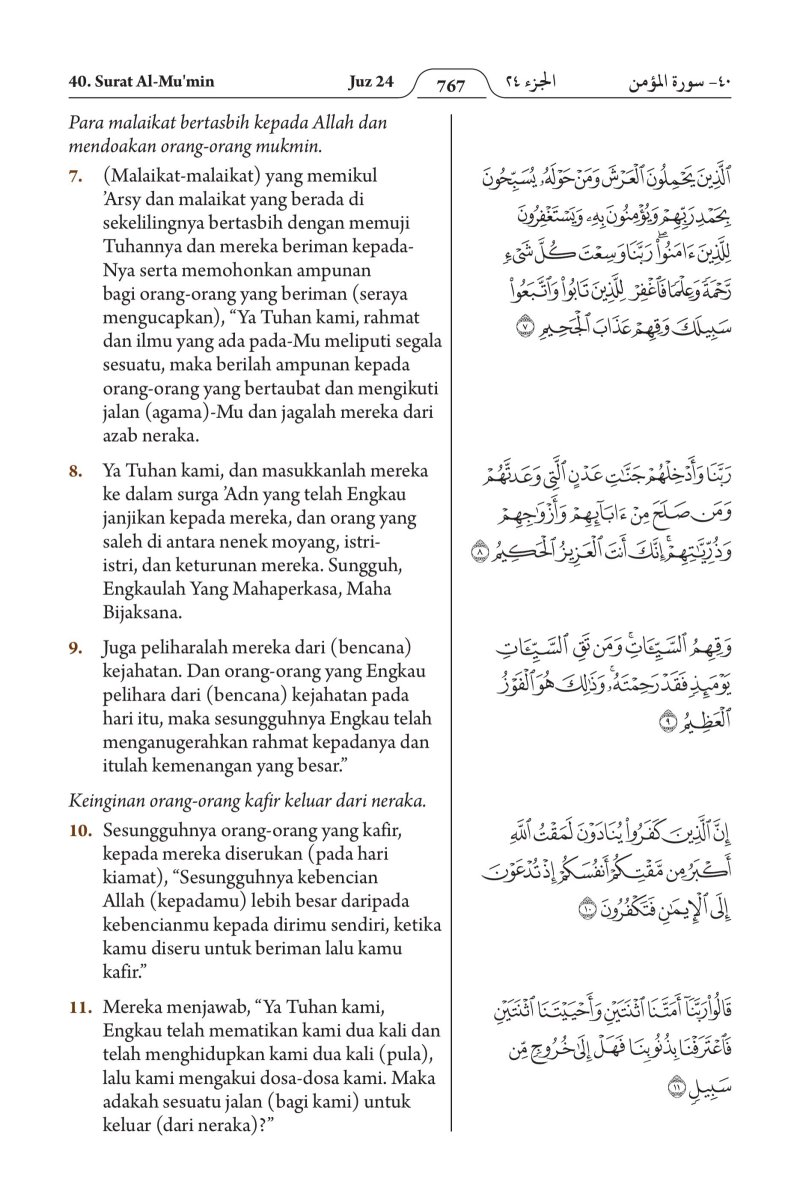 40. Surat Al-Mu'min
Juz 24
767
الجزء ٢٤
٤٠- سورة المؤمن
Para malaikat bertasbih kepada Allah dan
mendoakan orang-orang mukmin.
7. (Malaikat-malaikat) yang memikul
’Arsy dan malaikat yang berada di
sekelilingnya bertasbih dengan memuji
Tuhannya dan mereka beriman kepada-
Nya serta memohonkan ampunan
bagi orang-orang yang beriman (seraya
mengucapkan), “Ya Tuhan kami, rahmat
dan ilmu yang ada pada-Mu meliputi segala
sesuatu, maka berilah ampunan kepada
orang-orang yang bertaubat dan mengikuti
jalan (agama)-Mu dan jagalah mereka dari
azab neraka.
ٱلَّذِينَ يَحْمِلُونَ ٱلْعَرْشَ وَمَنْ حَوْلَهُۥ يُسَبِّحُونَ
بِحَمْدِ رَبِّهِمْ وَيُؤْمِنُونَ بِهِۦ وَيَسْتَغْفِرُونَ
لِلَّذِينَ ءَامَنُوا۟ ۖ رَبَّنَا وَسِعْتَ كُلَّ شَىْءٍ
رَّحْمَةً وَعِلْمًا فَٱغْفِرْ لِلَّذِينَ تَابُوا۟ وَٱتَّبَعُوا۟
سَبِيلَكَ وَقِهِمْ عَذَابَ ٱلْجَحِيمِ ٧
8. Ya Tuhan kami, dan masukkanlah mereka
ke dalam surga ’Adn yang telah Engkau
janjikan kepada mereka, dan orang yang
saleh di antara nenek moyang, istri-
istri, dan keturunan mereka. Sungguh,
Engkaulah Yang Mahaperkasa, Maha
Bijaksana.
رَبَّنَا وَأَدْخِلْهُمْ جَنَّٰتِ عَدْنٍ ٱلَّتِى وَعَدتَّهُمْ
وَمَن صَلَحَ مِنْ ءَابَآئِهِمْ وَأَزْوَٰجِهِمْ
وَذُرِّيَّٰتِهِمْ ۚ إِنَّكَ أَنتَ ٱلْعَزِيزُ ٱلْحَكِيمُ ٨
9. Juga peliharalah mereka dari (bencana)
kejahatan. Dan orang-orang yang Engkau
pelihara dari (bencana) kejahatan pada
hari itu, maka sesungguhnya Engkau telah
menganugerahkan rahmat kepadanya dan
itulah kemenangan yang besar.”
وَقِهِمُ ٱلسَّيِّـَٔاتِ ۚ وَمَن تَقِ ٱلسَّيِّـَٔاتِ
يَوْمَئِذٍ فَقَدْ رَحِمْتَهُۥ ۚ وَذَٰلِكَ هُوَ ٱلْفَوْزُ
ٱلْعَظِيمُ ٩
Keinginan orang-orang kafir keluar dari neraka.
10. Sesungguhnya orang-orang yang kafir,
kepada mereka diserukan (pada hari
kiamat), “Sesungguhnya kebencian
Allah (kepadamu) lebih besar daripada
kebencianmu kepada dirimu sendiri, ketika
kamu diseru untuk beriman lalu kamu
kafir.”
إِنَّ ٱلَّذِينَ كَفَرُوا۟ يُنَادَوْنَ لَمَقْتُ ٱللَّهِ
أَكْبَرُ مِن مَّقْتِكُمْ أَنفُسَكُمْ إِذْ تُدْعَوْنَ
إِلَى ٱلْإِيمَٰنِ فَتَكْفُرُونَ ١٠
11. Mereka menjawab, “Ya Tuhan kami,
Engkau telah mematikan kami dua kali dan
telah menghidupkan kami dua kali (pula),
lalu kami mengakui dosa-dosa kami. Maka
adakah sesuatu jalan (bagi kami) untuk
keluar (dari neraka)?”
قَالُوا۟ رَبَّنَآ أَمَتَّنَا ٱثْنَتَيْنِ وَأَحْيَيْتَنَا ٱثْنَتَيْنِ
فَٱعْتَرَفْنَا بِذُنُوبِنَا فَهَلْ إِلَىٰ خُرُوجٍ مِّن
سَبِيلٍ ١١